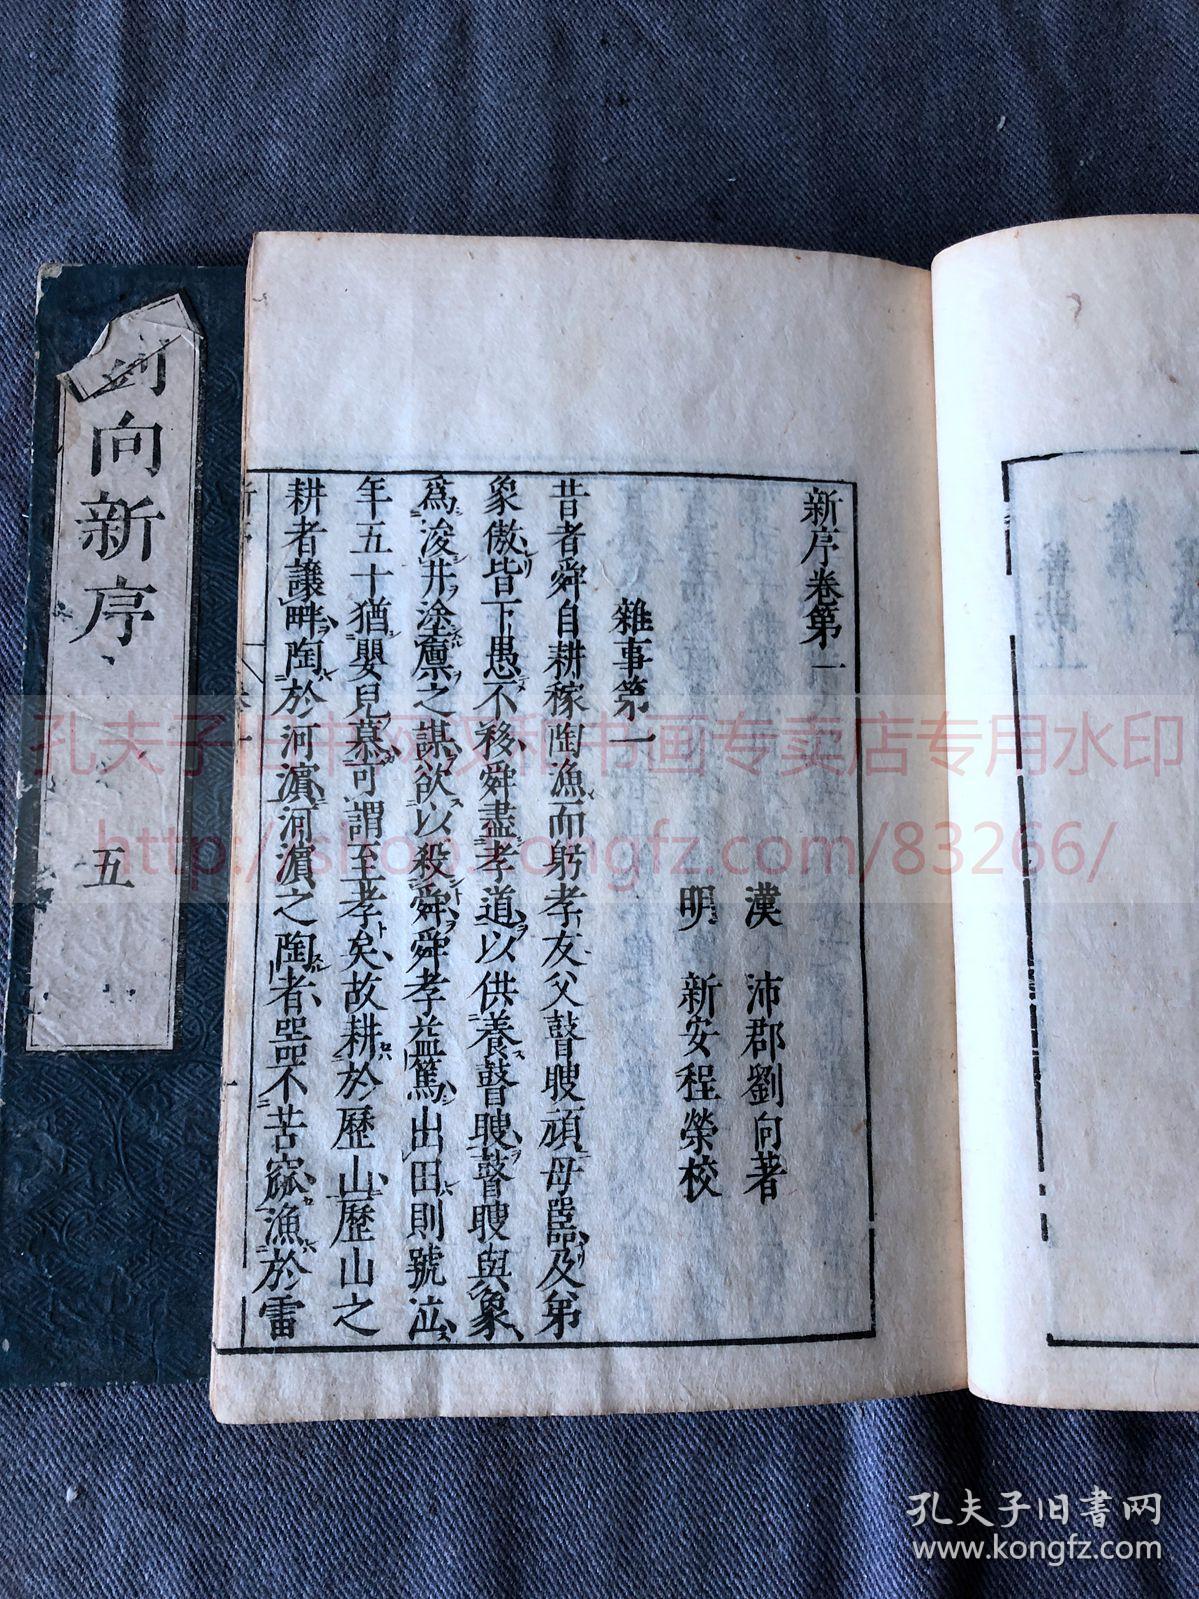 新序卷第一
漢　沛郡劉向著
明　新安程榮校
雜事第一
昔者舜自耕稼陶漁而躬孝友父瞽瞍頑母嚚及弟
象傲皆下愚不移舜盡孝道以供養瞽瞍瞽瞍與象
爲浚井塗廩之謀欲以殺舜舜孝益篤出田則號泣
年五十猶嬰兒慕可謂至孝矣故耕於歷山歷山之
耕者讓畔陶於河濵河濵之陶者器不苦窳漁於雷
劉向新序
五
孔夫子旧书网汉和书画专卖店专用水印
http://shop.kongfz.com/83266/
孔夫子旧书网
www.kongfz.com